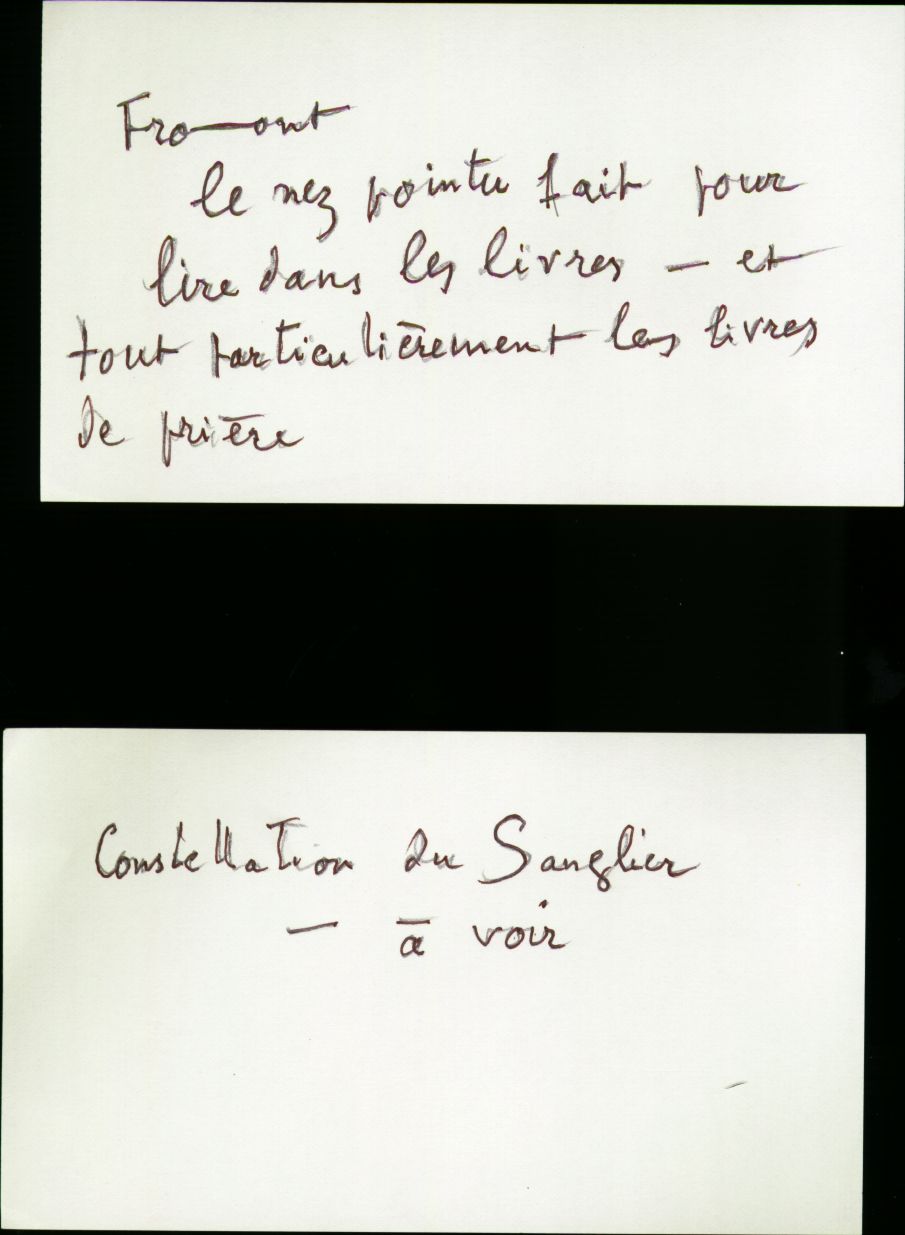 Fro—ont
le nez pointu fait pour
lire dans les livres — et
tout particulièrement les livres
de prière
Constellation du Sanglier
— à voir